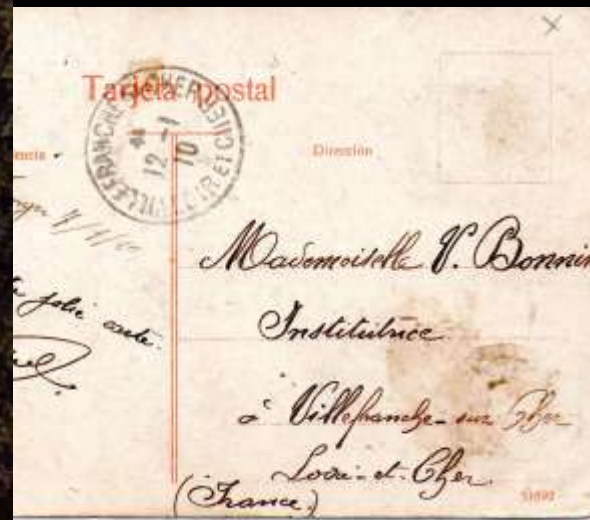 Tarjeta postal
VILLEFRANCHE-S-CHER
LOIR ET CHER
12 -1
10
Dirección
7/1/10
jolie carte.
Mademoiselle V. Bonnin
Institutrice
à Villefranche-sur Cher
Loir-et-Cher
(France)